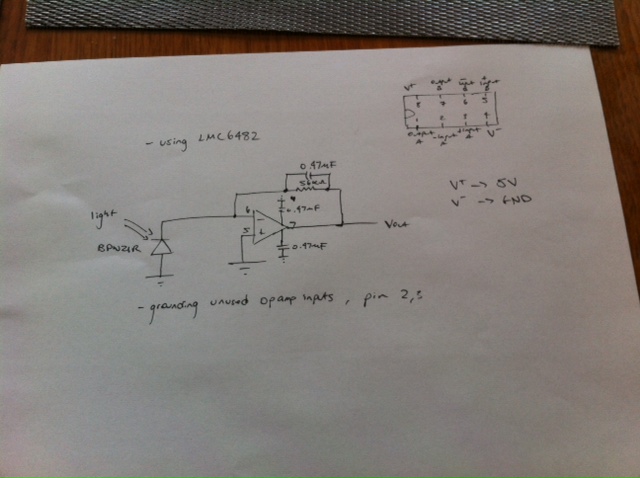 - using LMC6482
V+ output B -input B +input B
8 7 6 5
1 2 3 4
output A -input A +input A V-
0.47mF
56KΩ
0.47mF
light
6 -
7
Vout
5
BPW21R
0.47mF
V+ → 5V
V- → GND
- grounding unused opamp inputs, pin 2,3